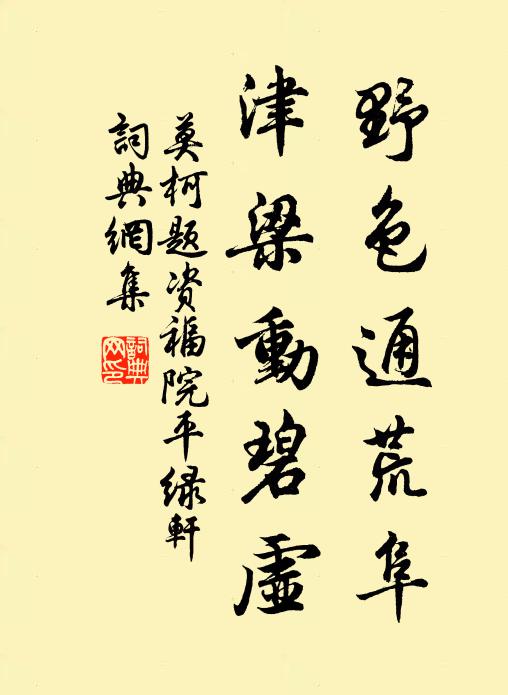 野色通荒阜
津梁動碧虛
莫柯題资福院平緑軒
詞典網集
詞典网印